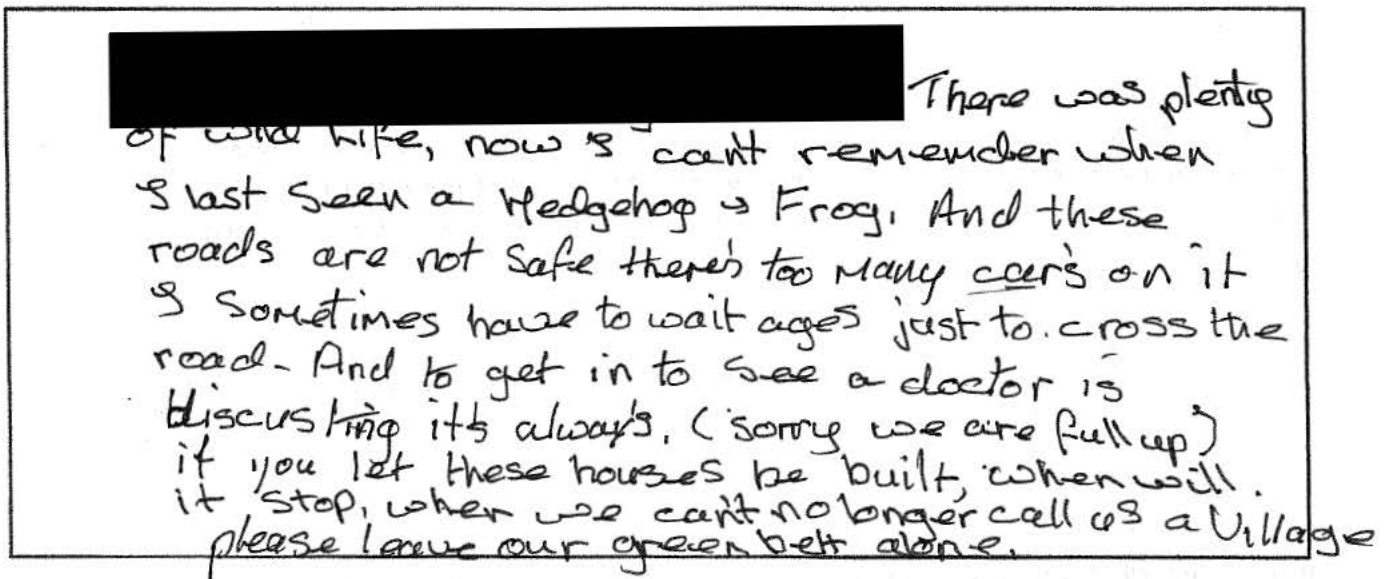 There was plenty
of wild Life, now I can't remember when
I last seen a Hedgehog or Frog. And these
roads are not safe there's too Many cars on it
I sometimes have to wait ages just to. cross the
road - And to get in to see a doctor is
discusting it's always, (sorry we are full up)
if you let these houses be built, when will.
it stop, when we can't no longer call us a Village
please leave our green belt alone.